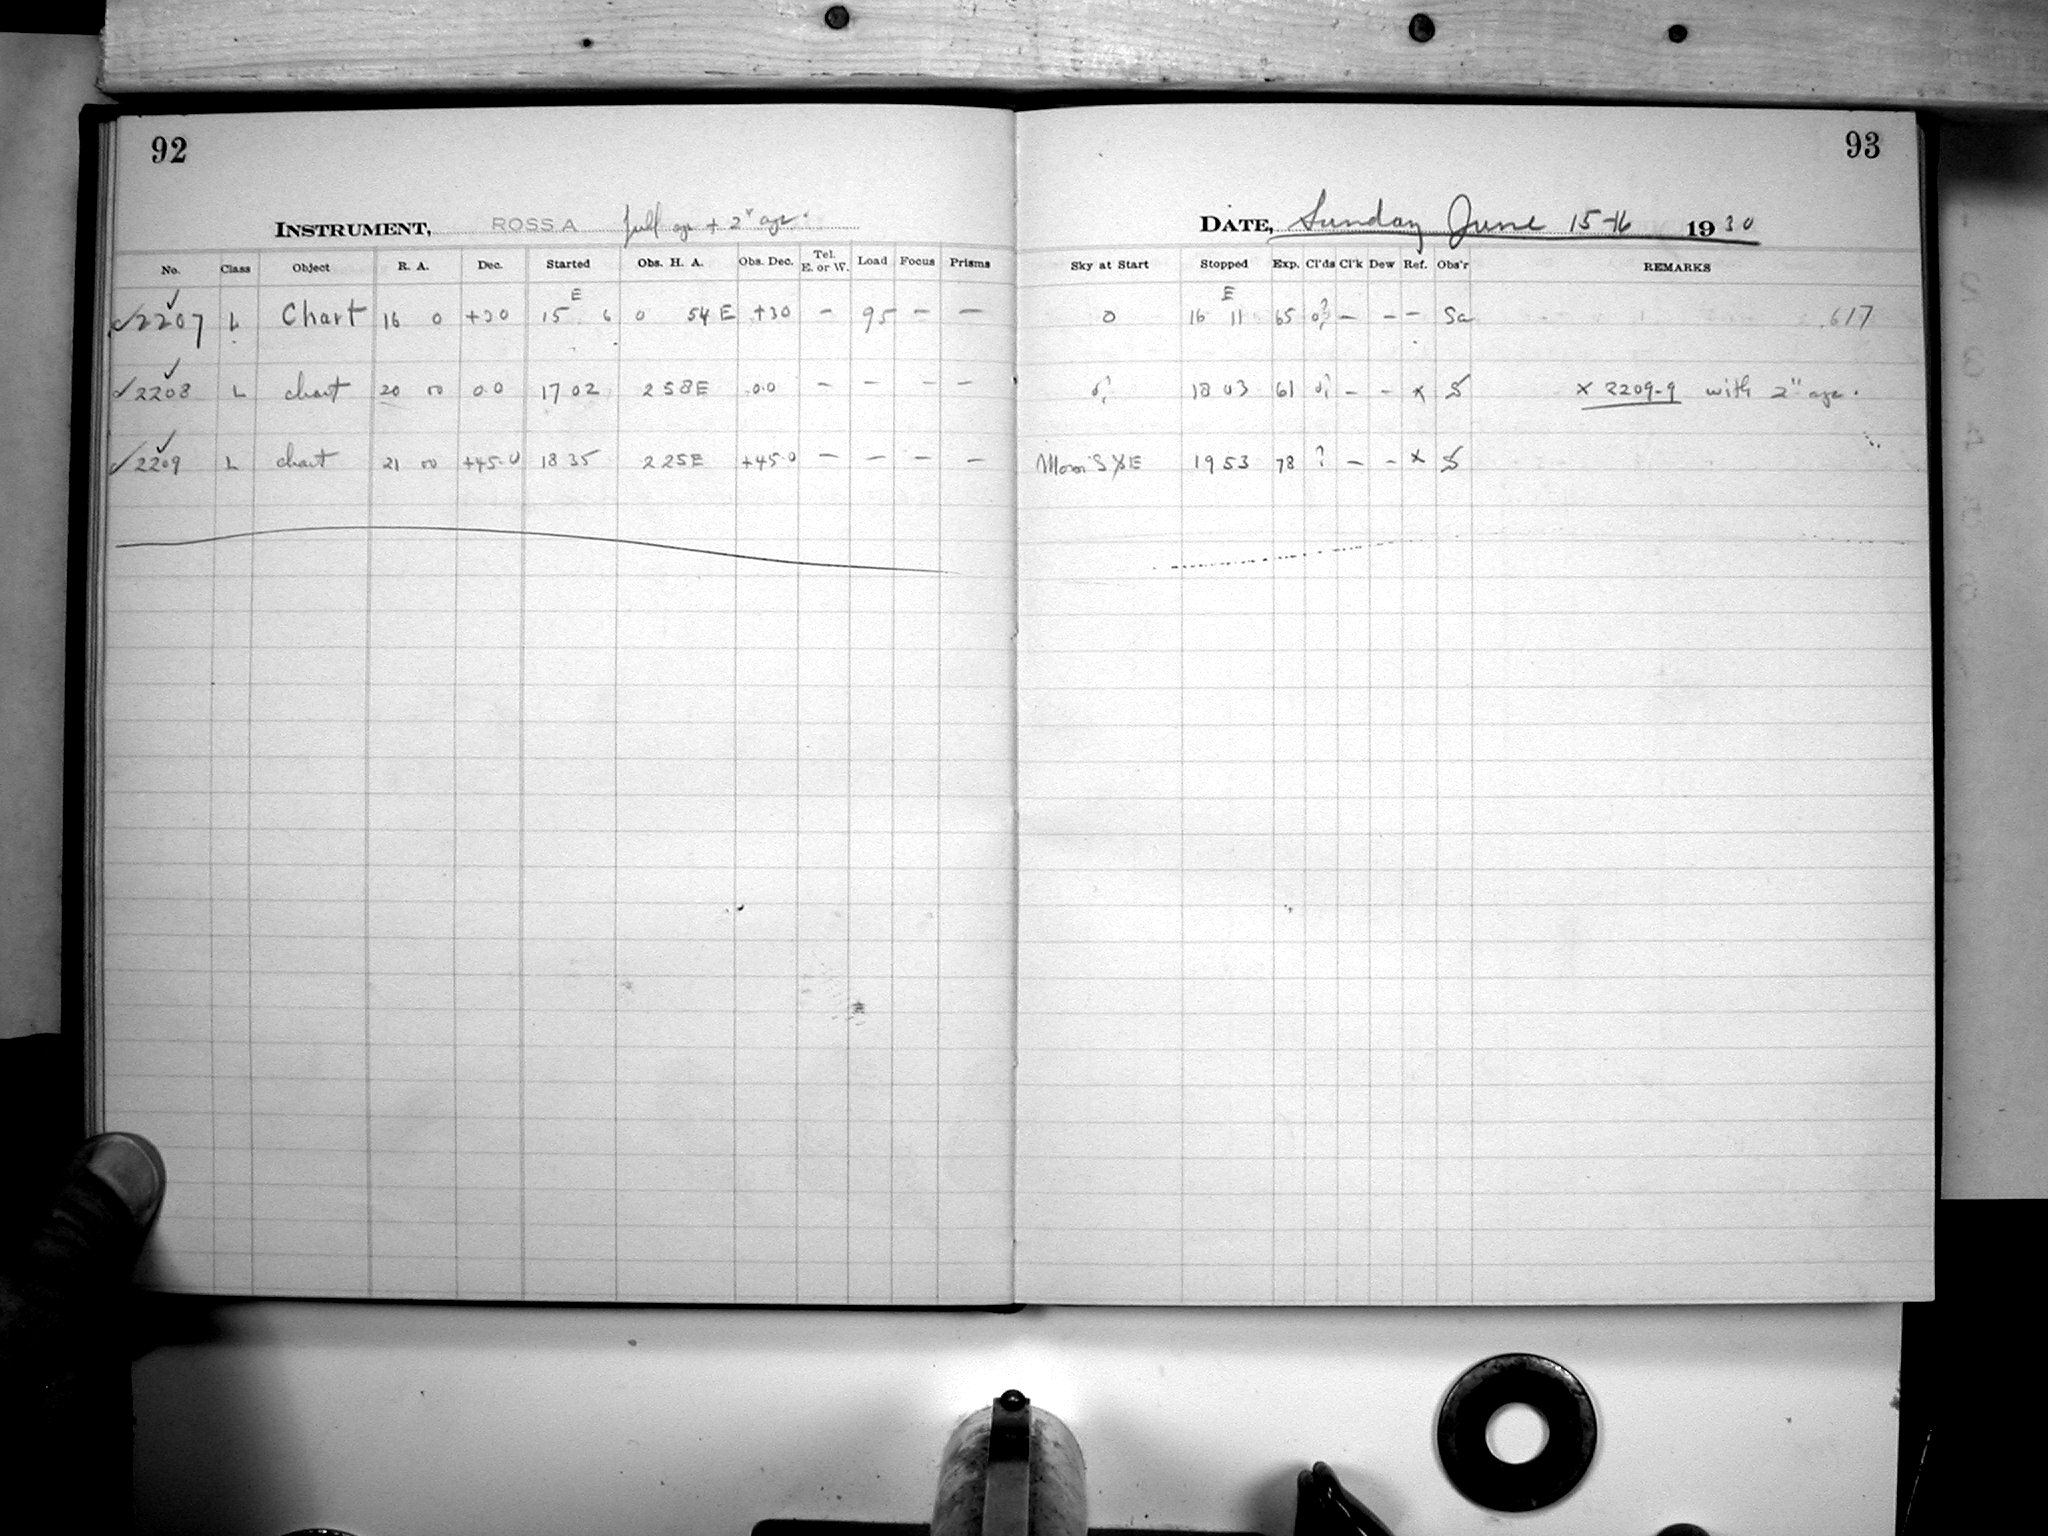 92
INSTRUMENT, ROSS A full ap + 2" ap.
No. Class Object R. A. Dec. Started Obs. H. A. Obs. Dec. Tel. E. or W. Load Focus Prisms
✓2207 ✓ L Chart 16 0 +30 15 E 6 0 54 E +30 — 95 — —
✓2208 ✓ L chart 20 00 0.0 17 02 2 58E 0.0 — — — —
✓2209 ✓ L chart 21 00 +45.0 18 35 2 25E +45.0 — — — —
93
DATE, Sunday June 15-16 1930
Sky at Start Stopped Exp. Cl'ds Cl'k Dew Ref. Obs'r REMARKS
0 16 E 11 65 0? — — — Sa 617
0? 18 03 61 0? — — x S x 2209-9 with 2" ap.
Moon SE 19 53 78 ? — — x S